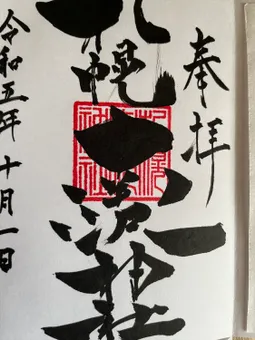 奉拝
札幌
神社
令和五年十月一日